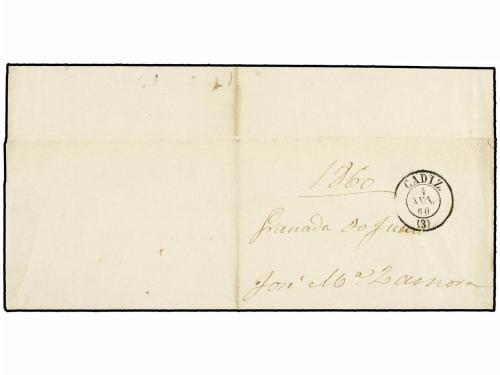 1860
CADIZ
4
JUL.
60
(3)
Granada 30 Junio
José Mª Zamora